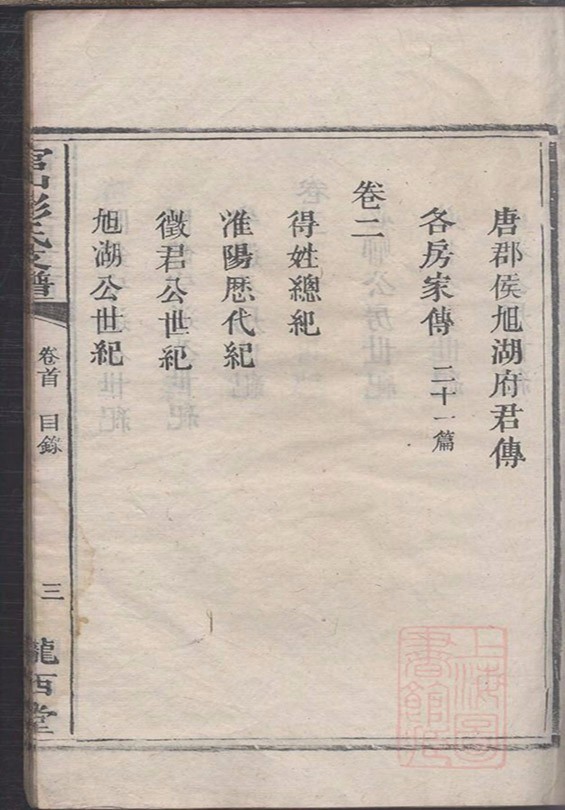 唐郡侯旭湖府君傳
各房家傳 二十一篇
卷二
得姓總紀
淮陽歷代紀
徵君公世紀
旭湖公世紀
官山彭氏支譜
卷首 目錄
三
隴西堂
上海圖
書館藏